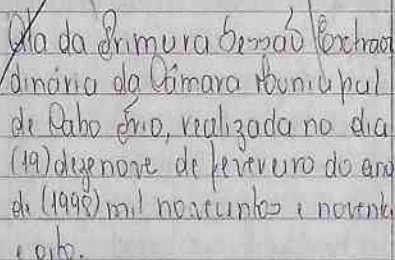 Ata da Primeira Sessão Extraor
dinária da Câmara Municipal
de Cabo Frio, realizada no dia
(19) dezenove de fevereiro do ano
de (1998) mil novecentos e novente
e oito.